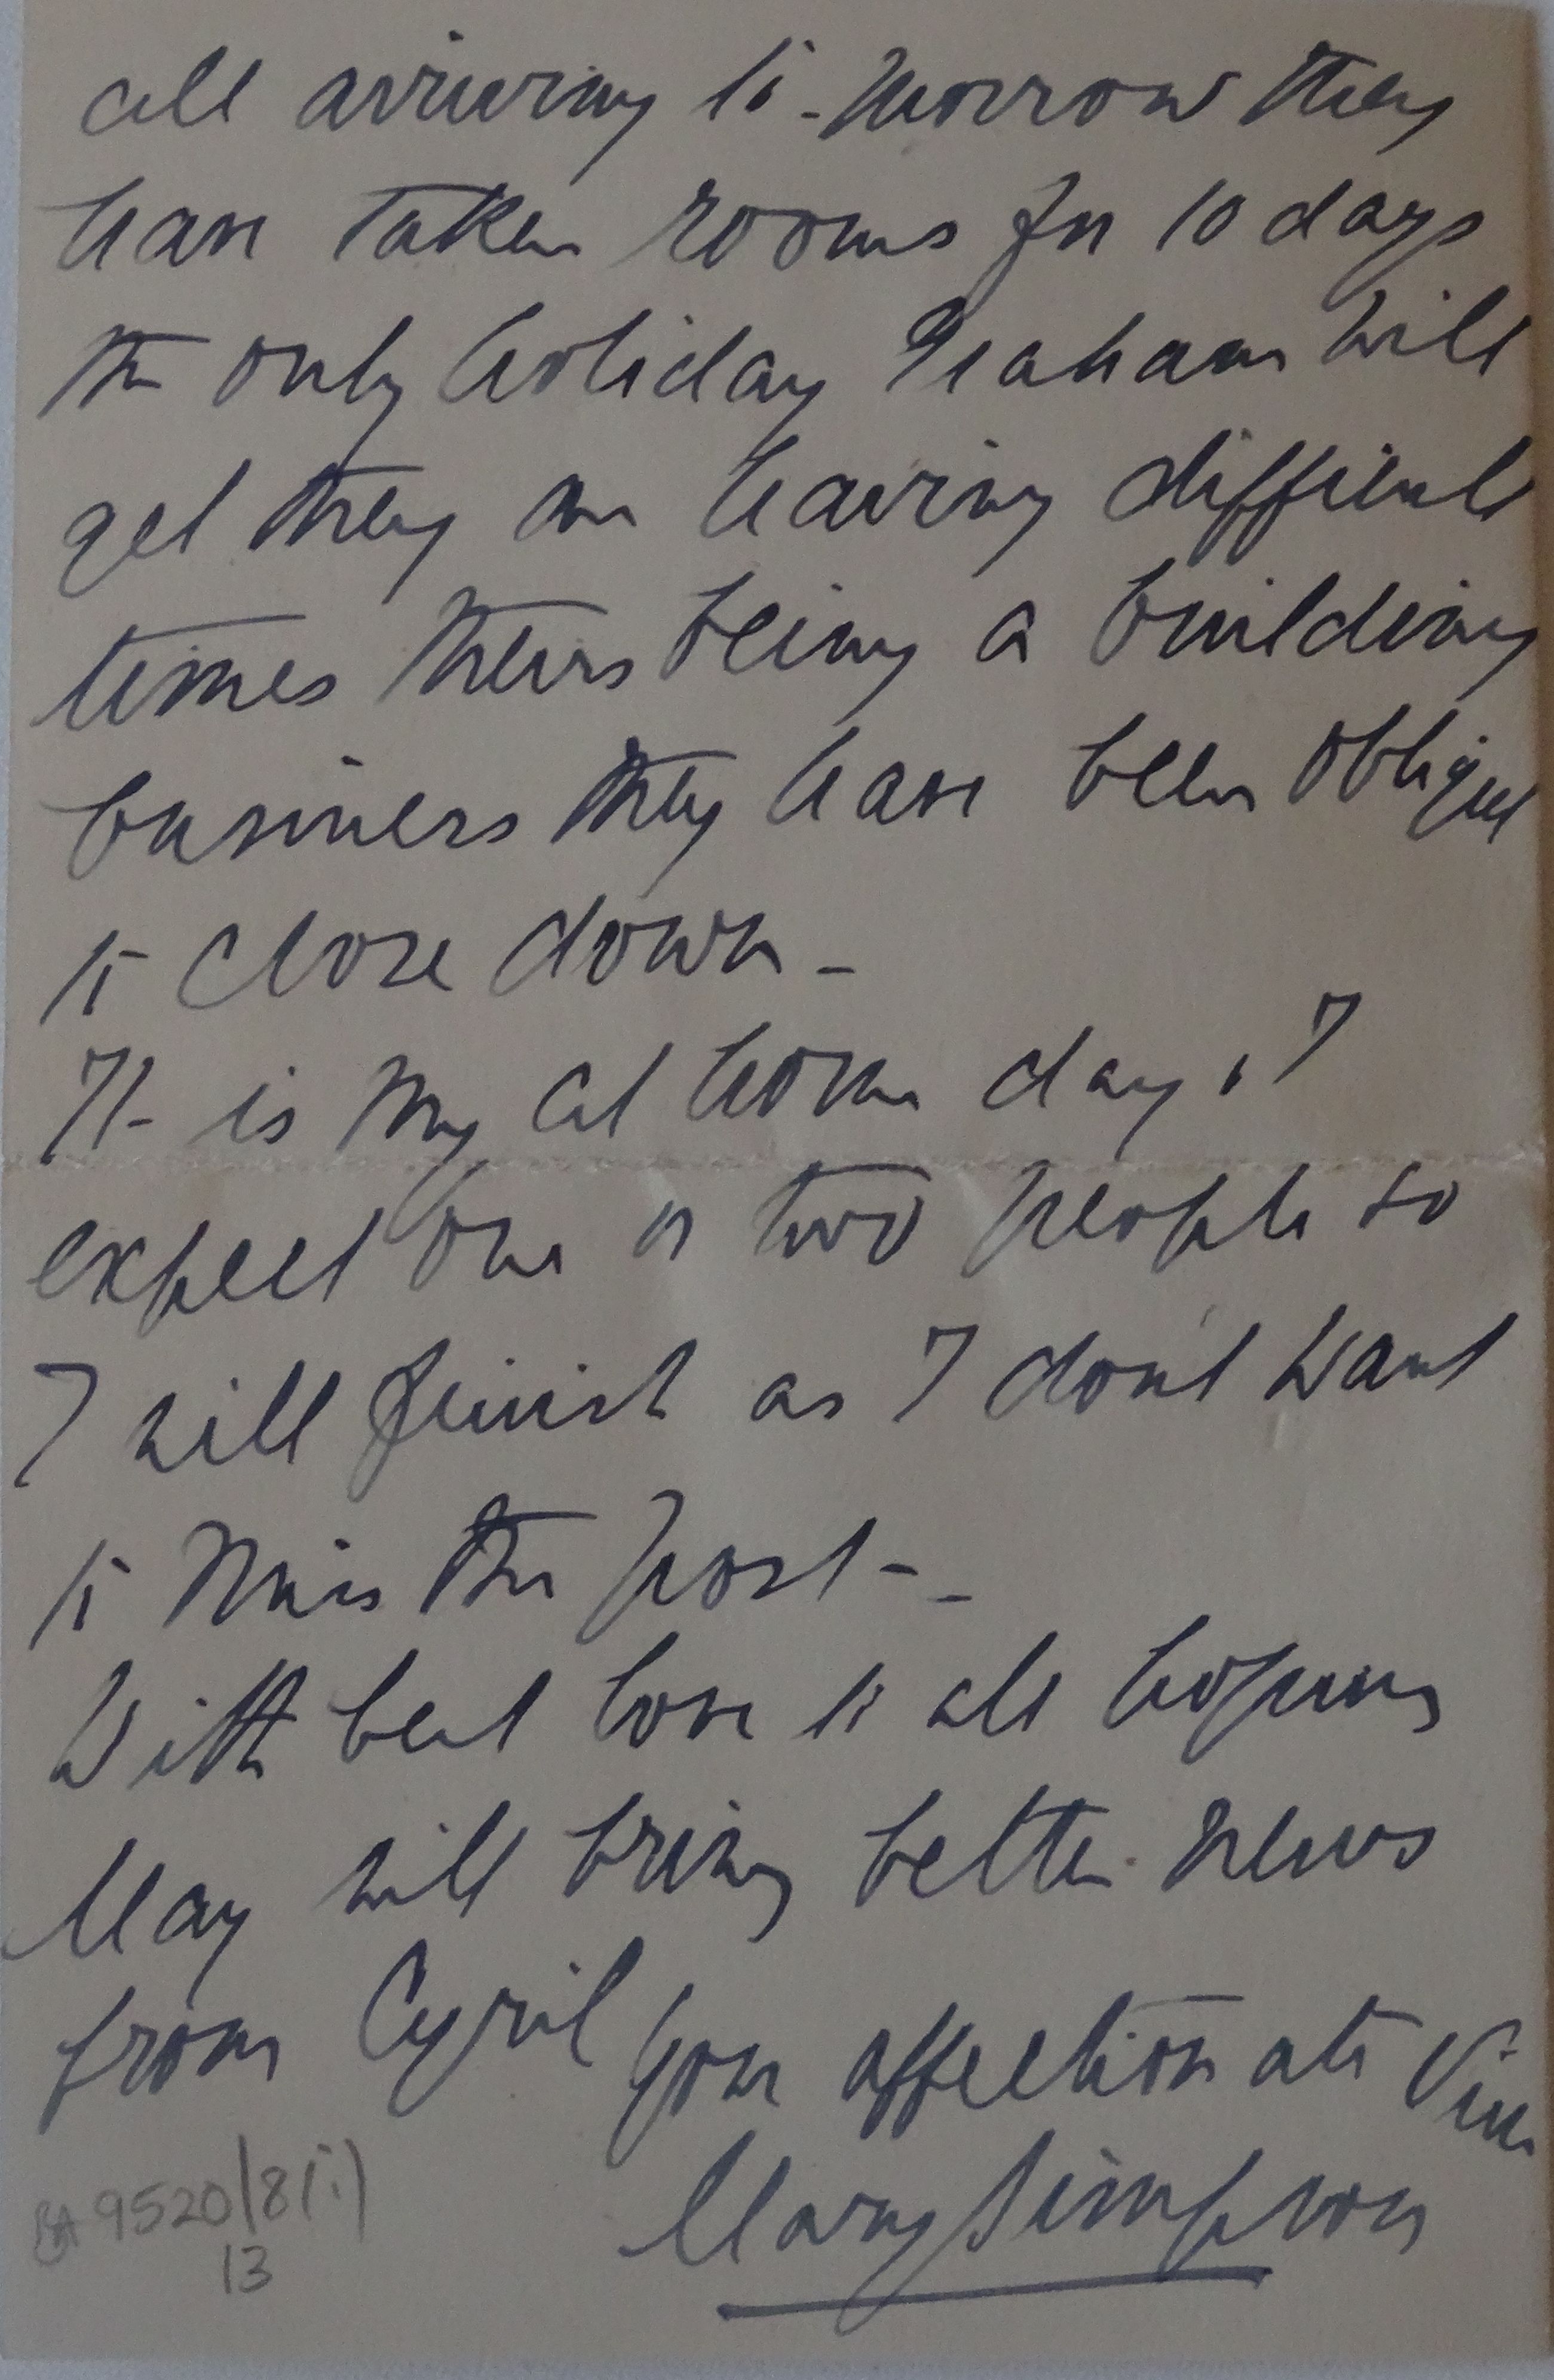 all arriving to-morrow they
have taken rooms for 10 days
the only holiday Graham will
get they are having difficult
times theirs being a building
business they have been obliged
to close down -
It is my at home day, I
expect one or two people so
I will finish as I don't want
to miss the post - -
With best love to all hoping
May will bring better news
from Cyril your affectionate
Mary Simpson
BA 9520/8(i)
13